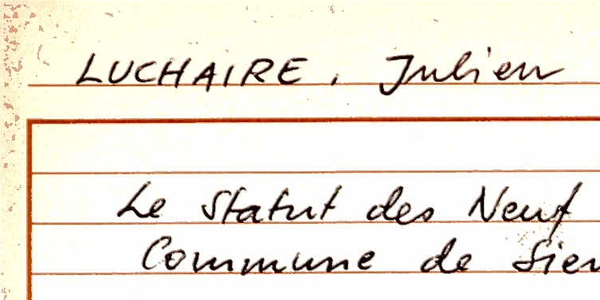 LUCHAIRE, Julien
Le Statut des Neuf
Commune de Sien